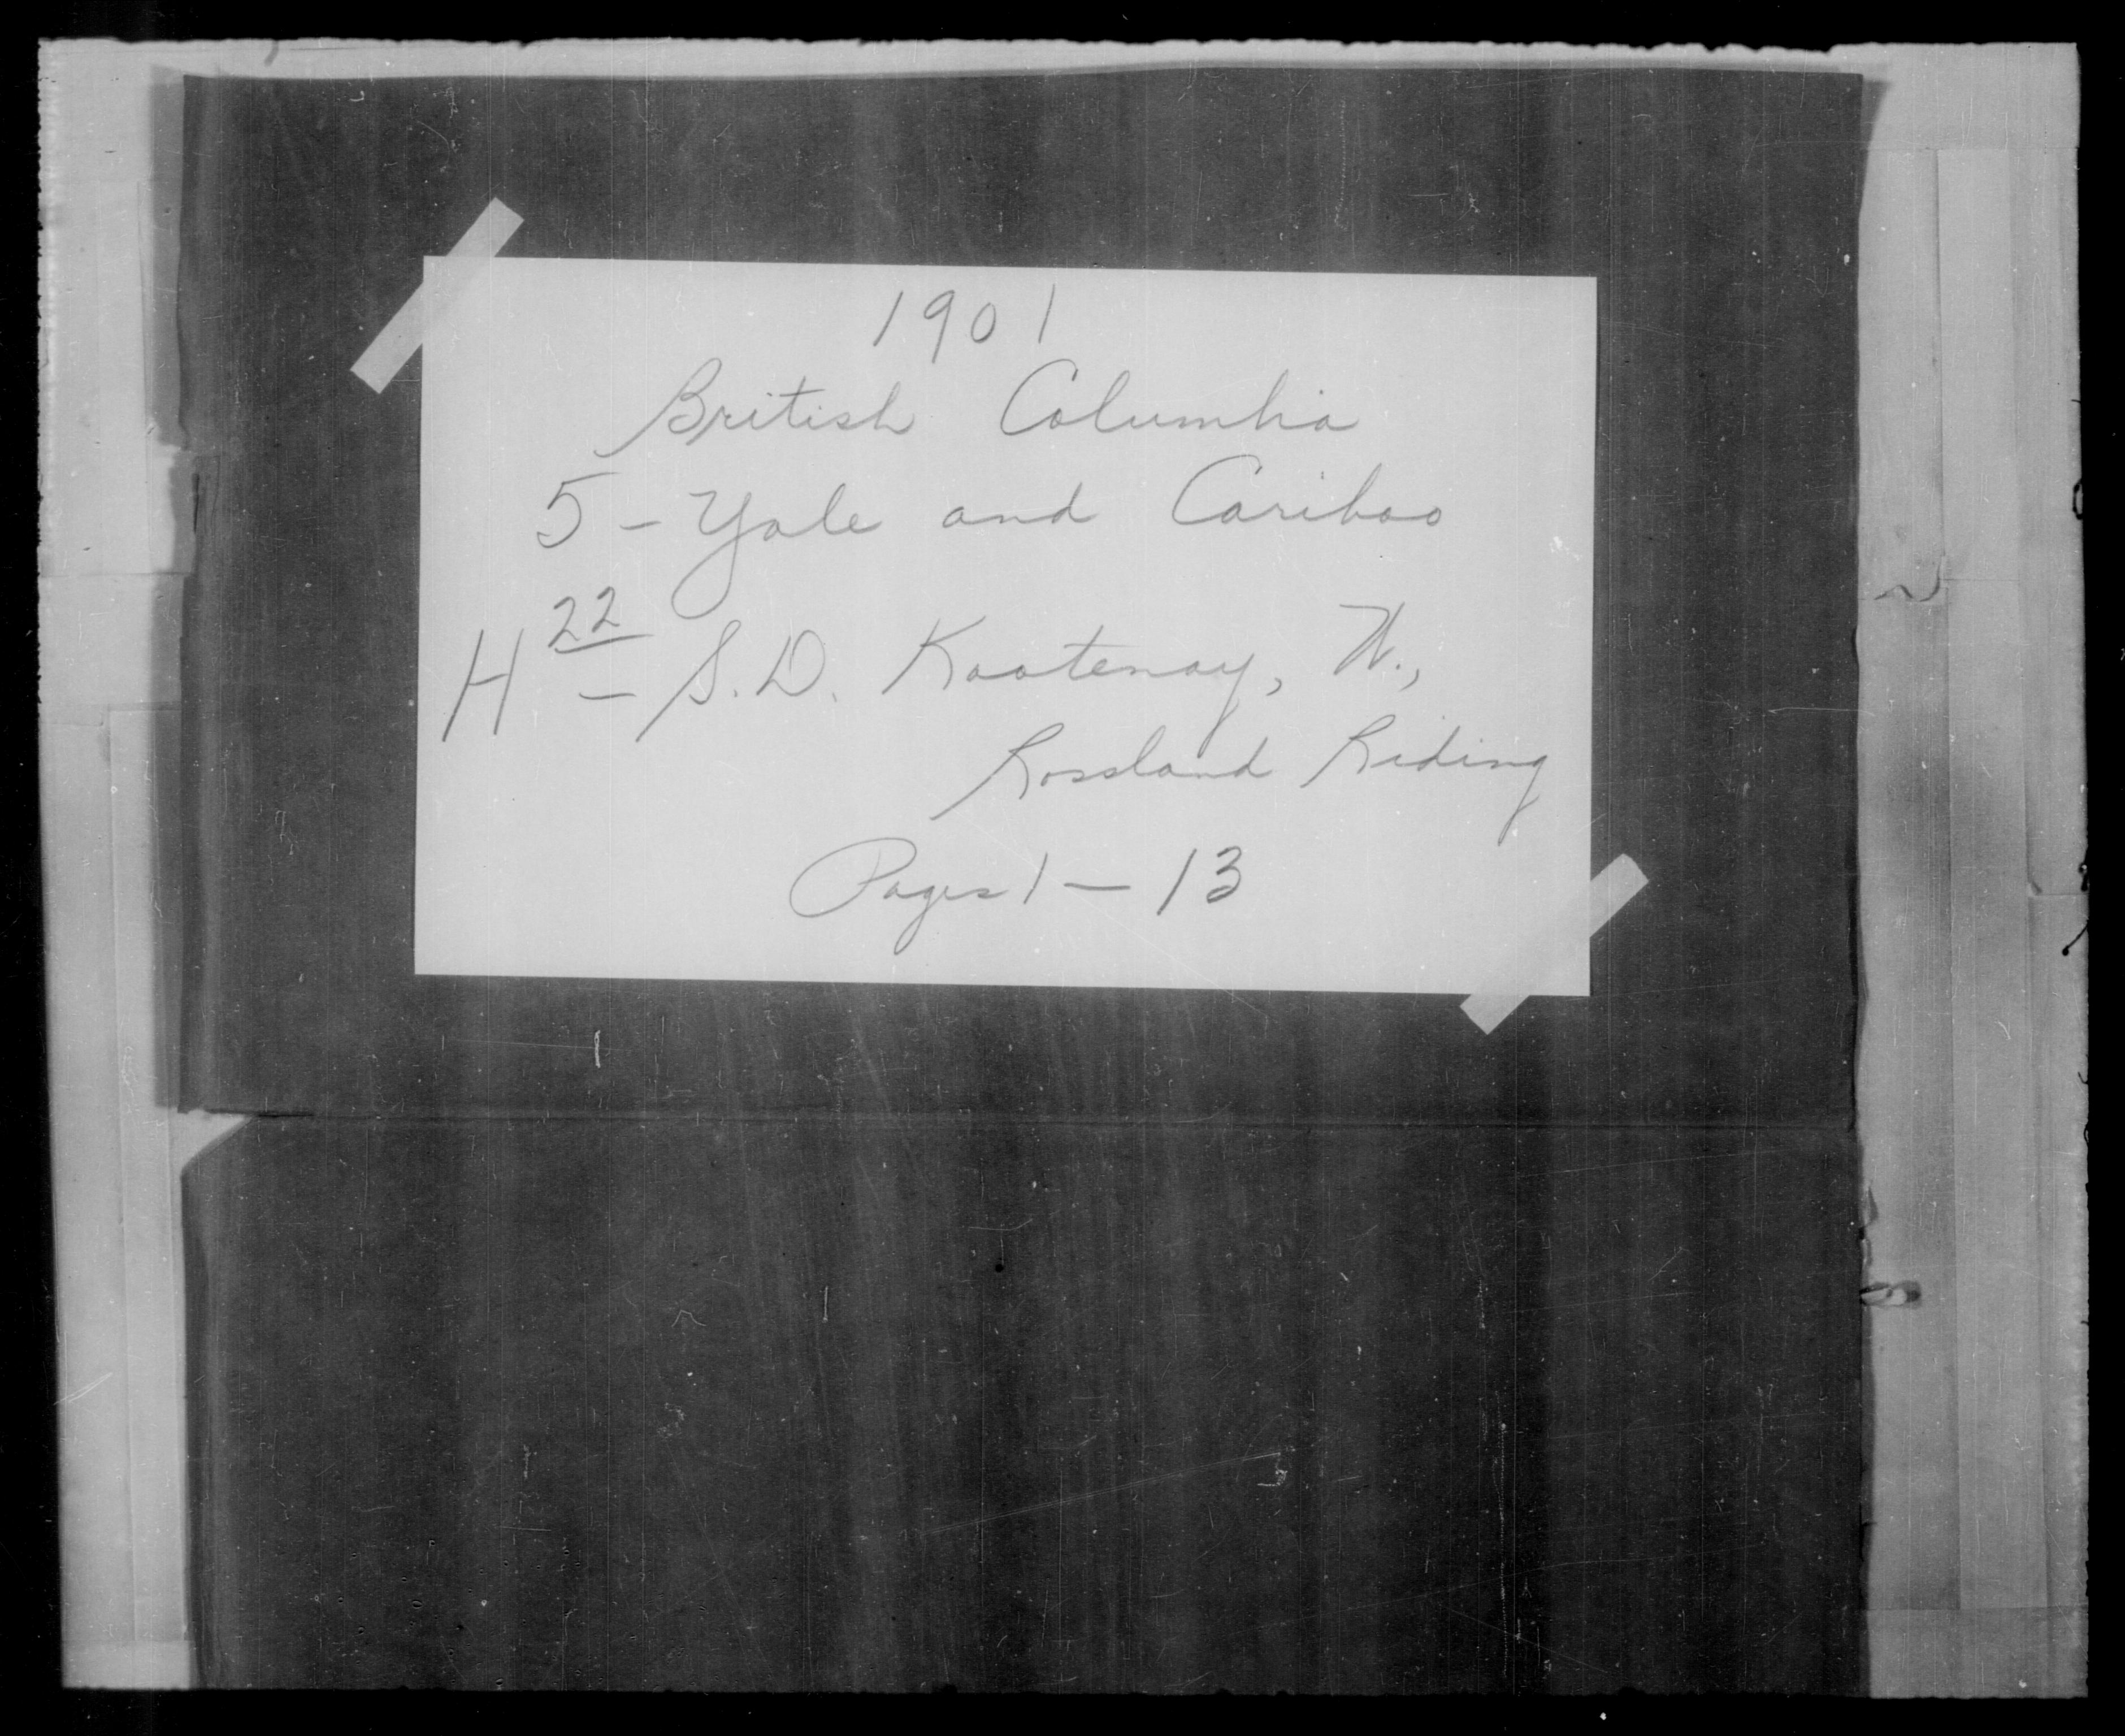 1901
British Columbia
5 - Yale and Cariboo
H 22 - S.D. Kootenay, W.,
Rossland Riding
Pages 1 — 13